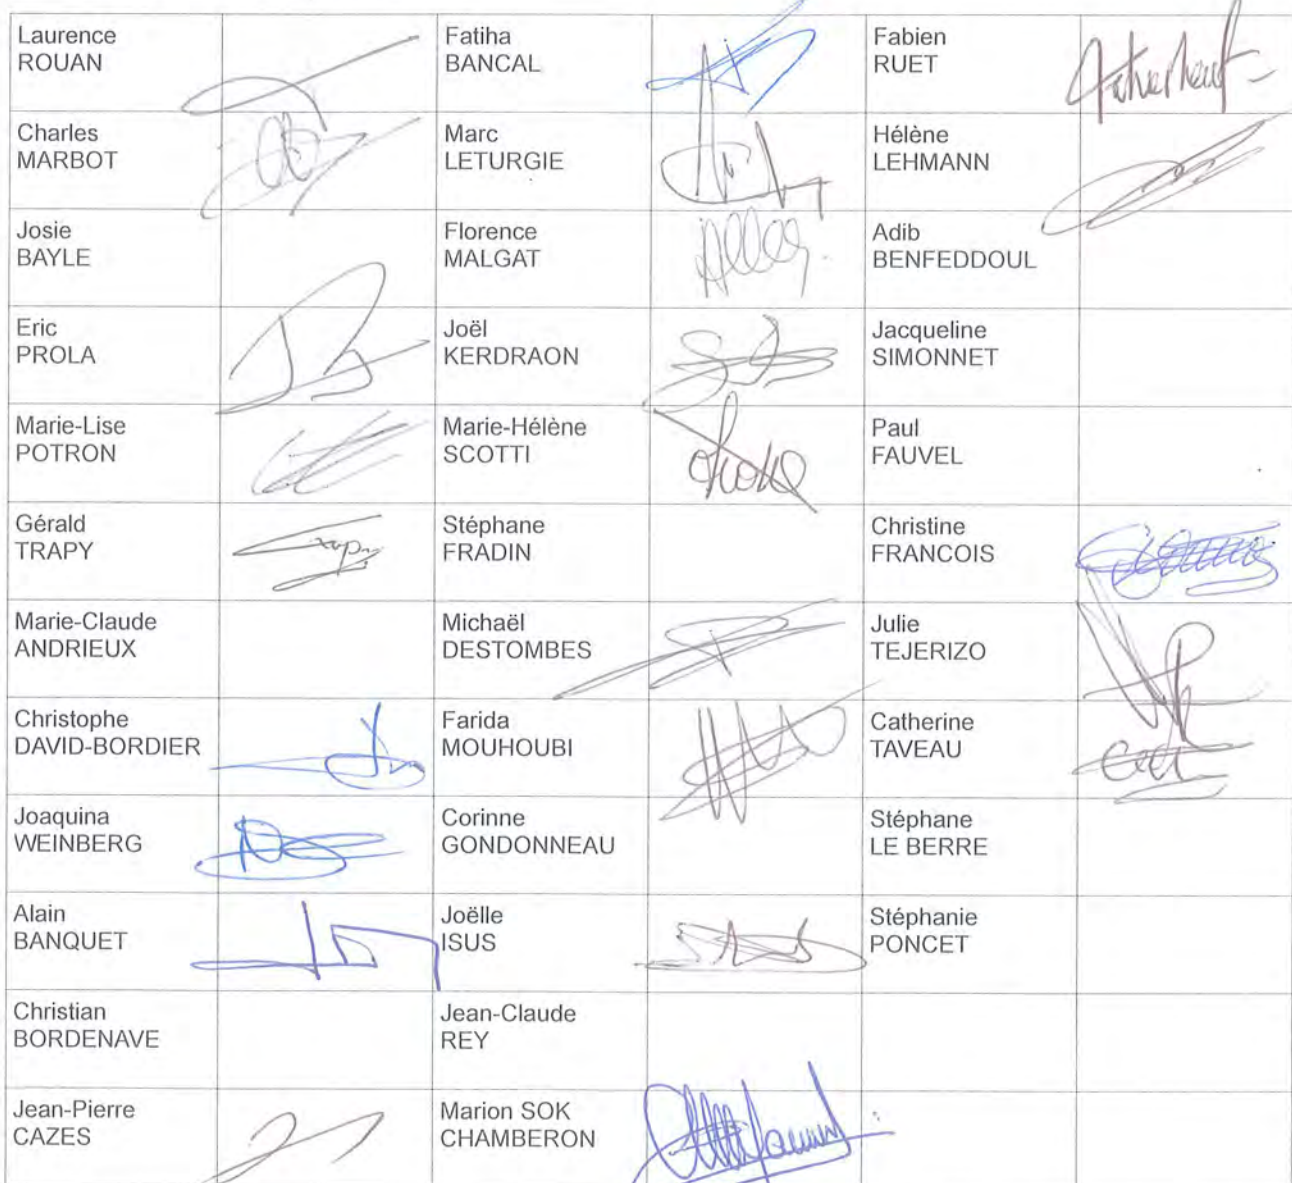 Laurence
ROUAN
Fatiha
BANCAL
Fabien
RUET
Charles
MARBOT
Marc
LETURGIE
Hélène
LEHMANN
Josie
BAYLE
Florence
MALGAT
Adib
BENFEDDOUL
Eric
PROLA
Joël
KERDRAON
Jacqueline
SIMONNET
Marie-Lise
POTRON
Marie-Hélène
SCOTTI
Paul
FAUVEL
Gérald
TRAPY
Stéphane
FRADIN
Christine
FRANCOIS
Marie-Claude
ANDRIEUX
Michaël
DESTOMBES
Julie
TEJERIZO
Christophe
DAVID-BORDIER
Farida
MOUHOUBI
Catherine
TAVEAU
Joaquina
WEINBERG
Corinne
GONDONNEAU
Stéphane
LE BERRE
Alain
BANQUET
Joëlle
ISUS
Stéphanie
PONCET
Christian
BORDENAVE
Jean-Claude
REY
Jean-Pierre
CAZES
Marion SOK
CHAMBERON